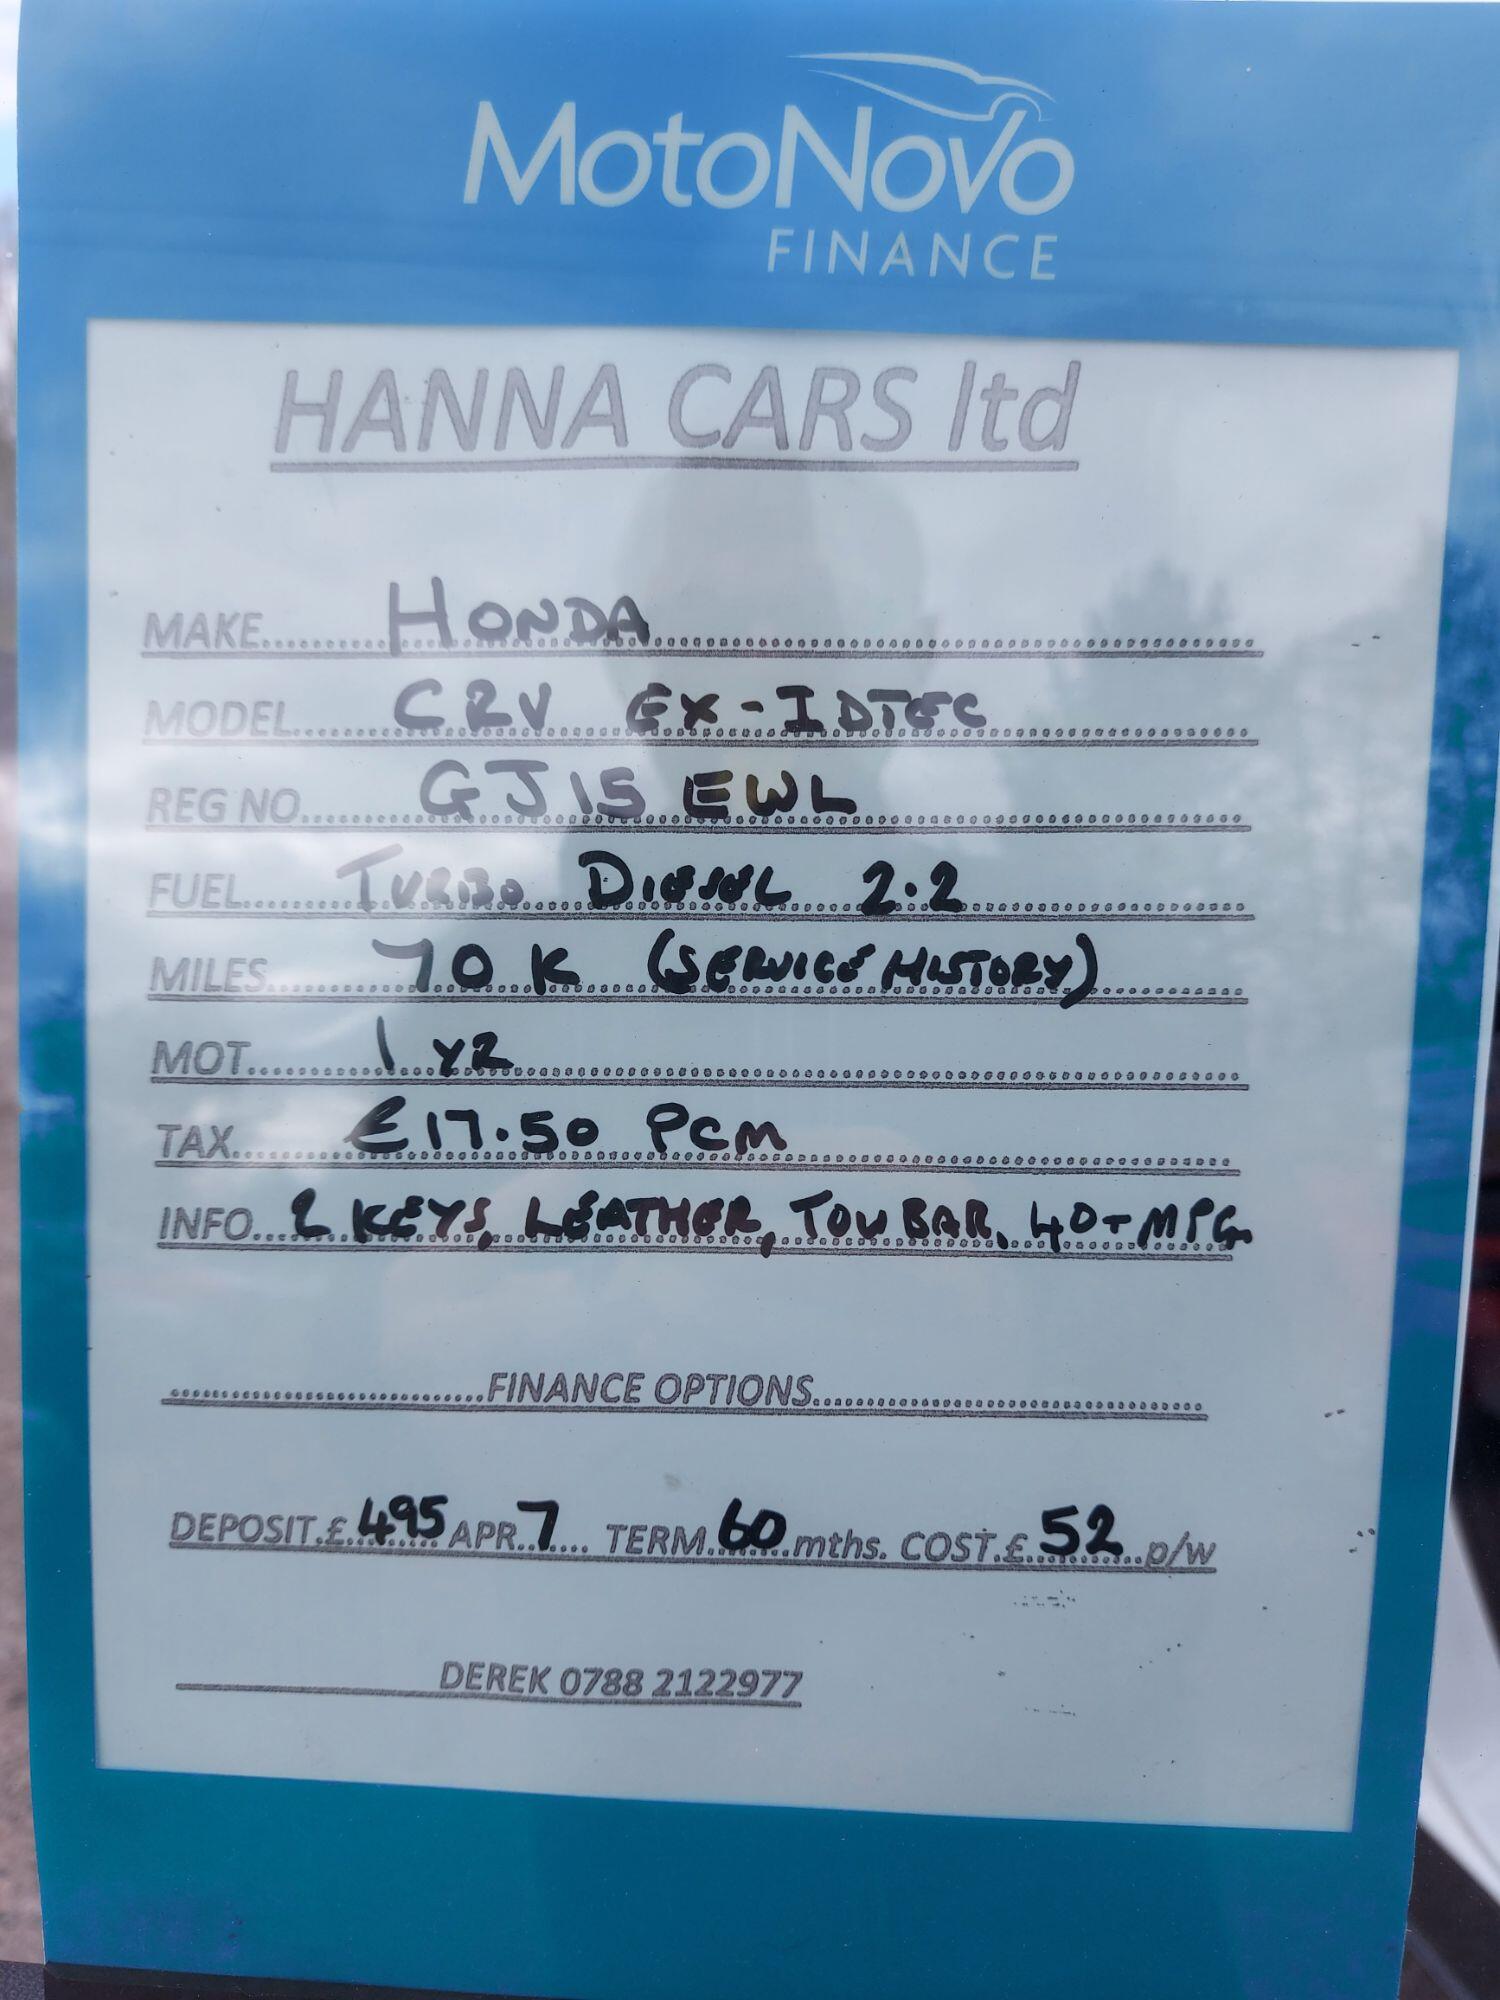 MotoNovo
FINANCE
HANNA CARS ltd
MAKE.......... HONDA
MODEL.......... CRV EX-IDTEC
REG NO.......... GJ15 EWL
FUEL.......... TURBO DIESEL 2.2
MILES.......... 70K (SERVICE HISTORY)
MOT.......... 1 YR
TAX.......... £17.50 PCM
INFO... 2 KEYS, LEATHER, TOW BAR, 40+MPG.
..........FINANCE OPTIONS..........
DEPOSIT.£.495 APR..7.... TERM.60.mths. COST.£.52..p/w
DEREK 0788 2122977